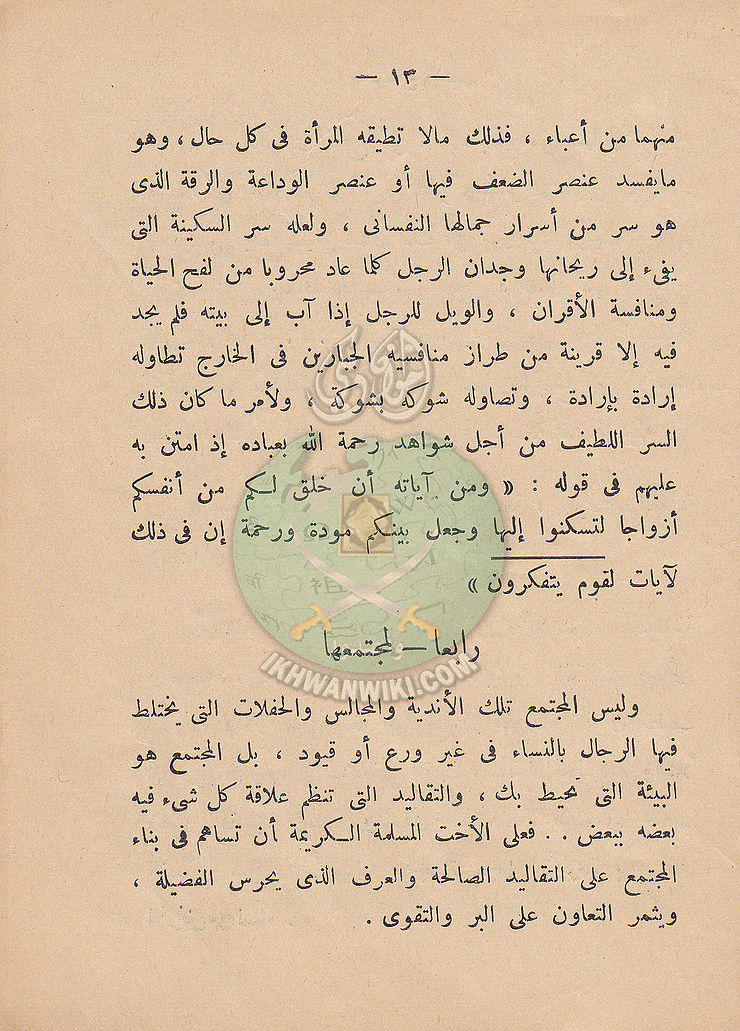 — ١٣ —
منهما من أعباء ، فذلك مالا تطيقه المرأة فى كل حال ، وهو
مايفسد عنصر الضعف فيها أو عنصر الوداعة والرقة الذى
هو سر من أسرار جمالها النفسانى ، ولعله سر السكينة التى
يفىء إلى ريحانها وجدان الرجل كلما عاد محروبا من لفح الحياة
ومنافسة الأقران ، والويل للرجل إذا آب إلى بيته فلم يجد
فيه إلا قرينة من طراز منافسيه الجبارين فى الخارج تطاوله
إرادة بإرادة ، وتصاوله شوكة بشوكة ، ولأمر ما كان ذلك
السر اللطيف من أجل شواهد رحمة الله بعباده إذ امتن به
عليهم فى قوله : « ومن آياته أن خلق لكم من أنفسكم
أزواجا لتسكنوا إليها وجعل بينكم مودة ورحمة إن فى ذلك
لآيات لقوم يتفكرون »
رابعا – لمجتمعها
IKHWANWIKI.COM
وليس المجتمع تلك الأندية والمجالس والحفلات التى يختلط
فيها الرجال بالنساء فى غير ورع أو قيود ، بل المجتمع هو
البيئة التى تحيط بك ، والتقاليد التى تنظم علاقة كل شىء فيه
بعضه ببعض . . فعلى الأخت المسلمة الكريمة أن تساهم فى بناء
المجتمع على التقاليد الصالحة والعرف الذى يحرس الفضيلة ،
ويثمر التعاون على البر والتقوى .